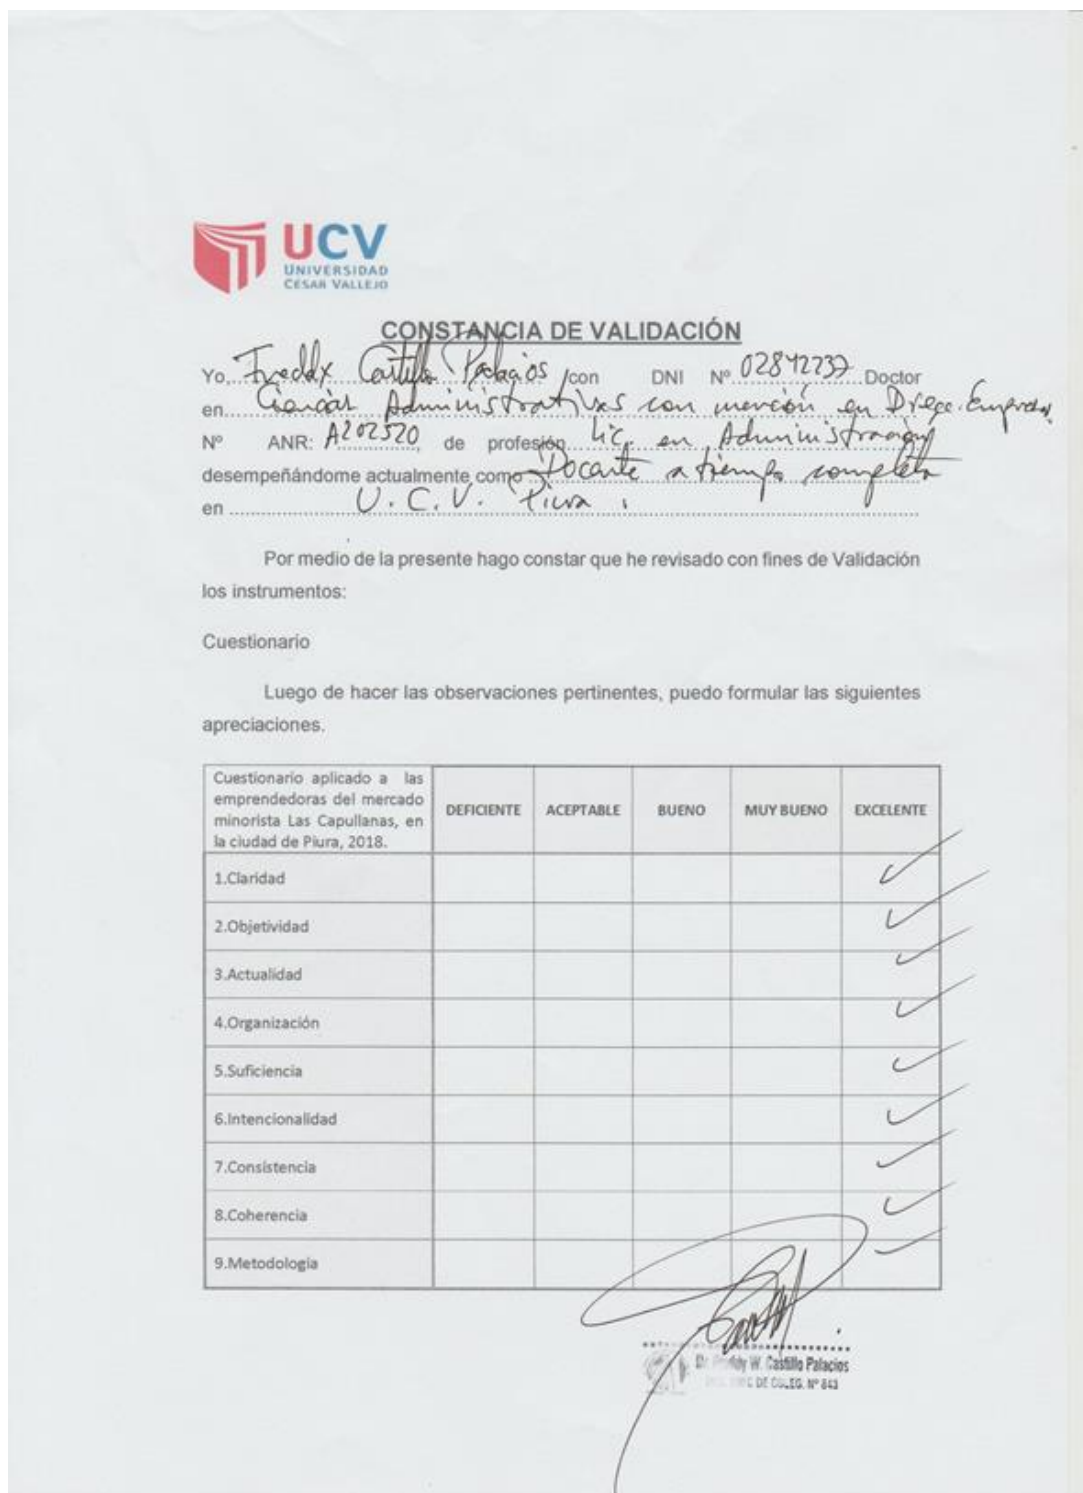 UCV
UNIVERSIDAD
CÉSAR VALLEJO
CONSTANCIA DE VALIDACIÓN
Yo, Freddy Castillo Palacios, con DNI Nº 02842237 Doctor
en Ciencias Administrativas con mención en Direcc. Empresar.
Nº ANR: A202520, de profesión Lic. en Administración
desempeñándome actualmente como Docente a tiempo completo
en U.C.V. Piura.
Por medio de la presente hago constar que he revisado con fines de Validación
los instrumentos:
Cuestionario
Luego de hacer las observaciones pertinentes, puedo formular las siguientes
apreciaciones.
Cuestionario aplicado a las
emprendedoras del mercado
minorista Las Capullanas, en
la ciudad de Piura, 2018.
DEFICIENTE ACEPTABLE BUENO MUY BUENO EXCELENTE
1.Claridad ✓
2.Objetividad ✓
3.Actualidad ✓
4.Organización ✓
5.Suficiencia ✓
6.Intencionalidad ✓
7.Consistencia ✓
8.Coherencia ✓
9.Metodología ✓
Dr. Freddy W. Castillo Palacios
DE COLEG. Nº 843